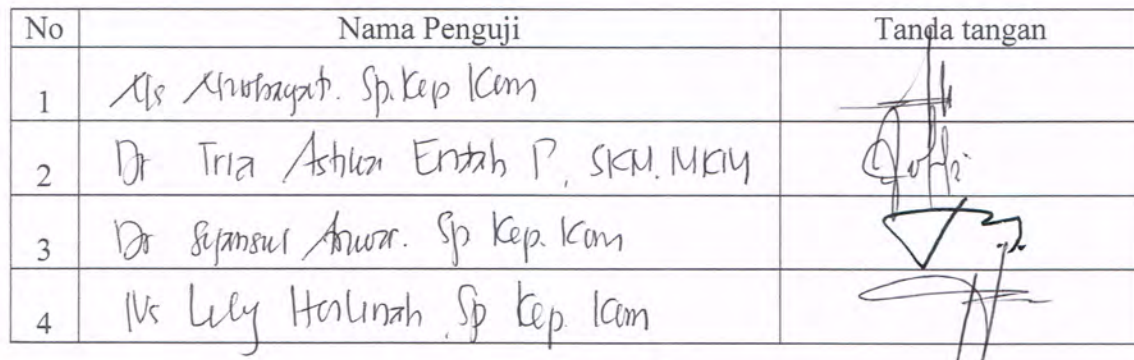 No Nama Penguji Tanda tangan
1 Ns Sp. Kep Kom
2 Dr Tria Astika Endah P, SKM. MKM
3 Dr Syamsul Anwar. Sp Kep. Kom
4 Ns Lily Herlinah Sp Kep. Kom